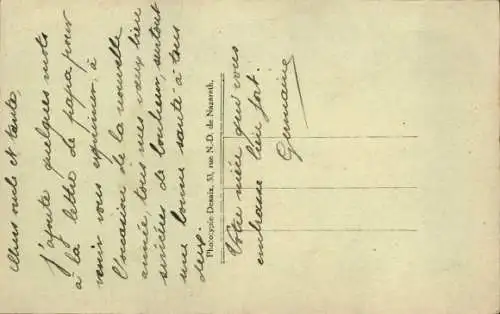 Chers oncle et tante,
J'ajoute quelques mots
à la lettre de papa pour
venir vous exprimer, à
l'occasion de la nouvelle
année, tous mes vœux bien
sincères de bonheur, surtout
une bonne santé à tous
deux.
Votre nièce qui vous
embrasse bien fort.
Germaine
Phototypie-Desaix, 33, rue N.-D. de Nazareth,